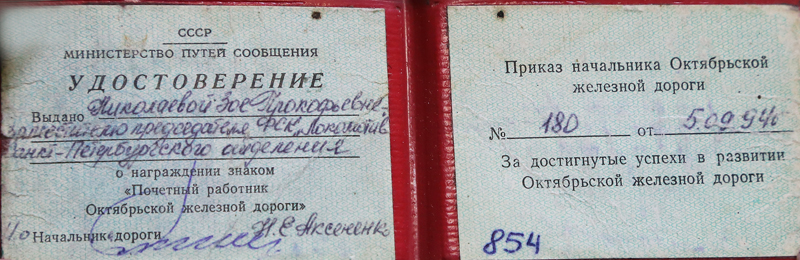 СССР
МИНИСТЕРСТВО ПУТЕЙ СООБЩЕНИЯ
УДОСТОВЕРЕНИЕ
Выдано Николаевой Зое Прокофьевне
заместителю председателя ФСК „Локомотив
Санкт-Петербургского отделения
о награждении знаком
«Почетный работник
Октябрьской железной дороги»
И.о Начальник дороги Н.Е Аксененко
Приказ начальника Октябрьской
железной дороги
№ 180 от 5.09.94г
За достигнутые успехи в развитии
Октябрьской железной дороги
854